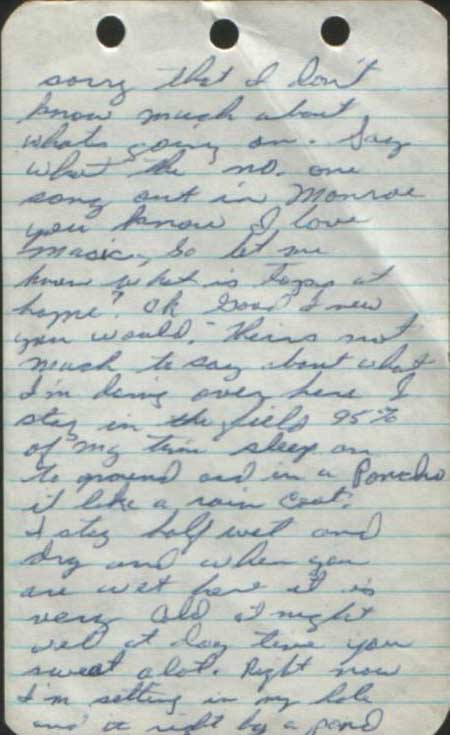 sorry that I don't
know much about
whats going on. Say
what the no. one
song out in Monroe
you know I love
music, So let me
know what is tops at
home? Ok Good I new
you would. Theirs not
much to say about what
I'm doing over here I
stay in the field 95%
of my tim sleep on
to ground and in a Poncho
it like a rain coat.
I stay half wet and
dry and when you
are wet here it is
very cold at night
well at day time you
sweat alot. Right now
I'm setting in my hole
and it right by a pond